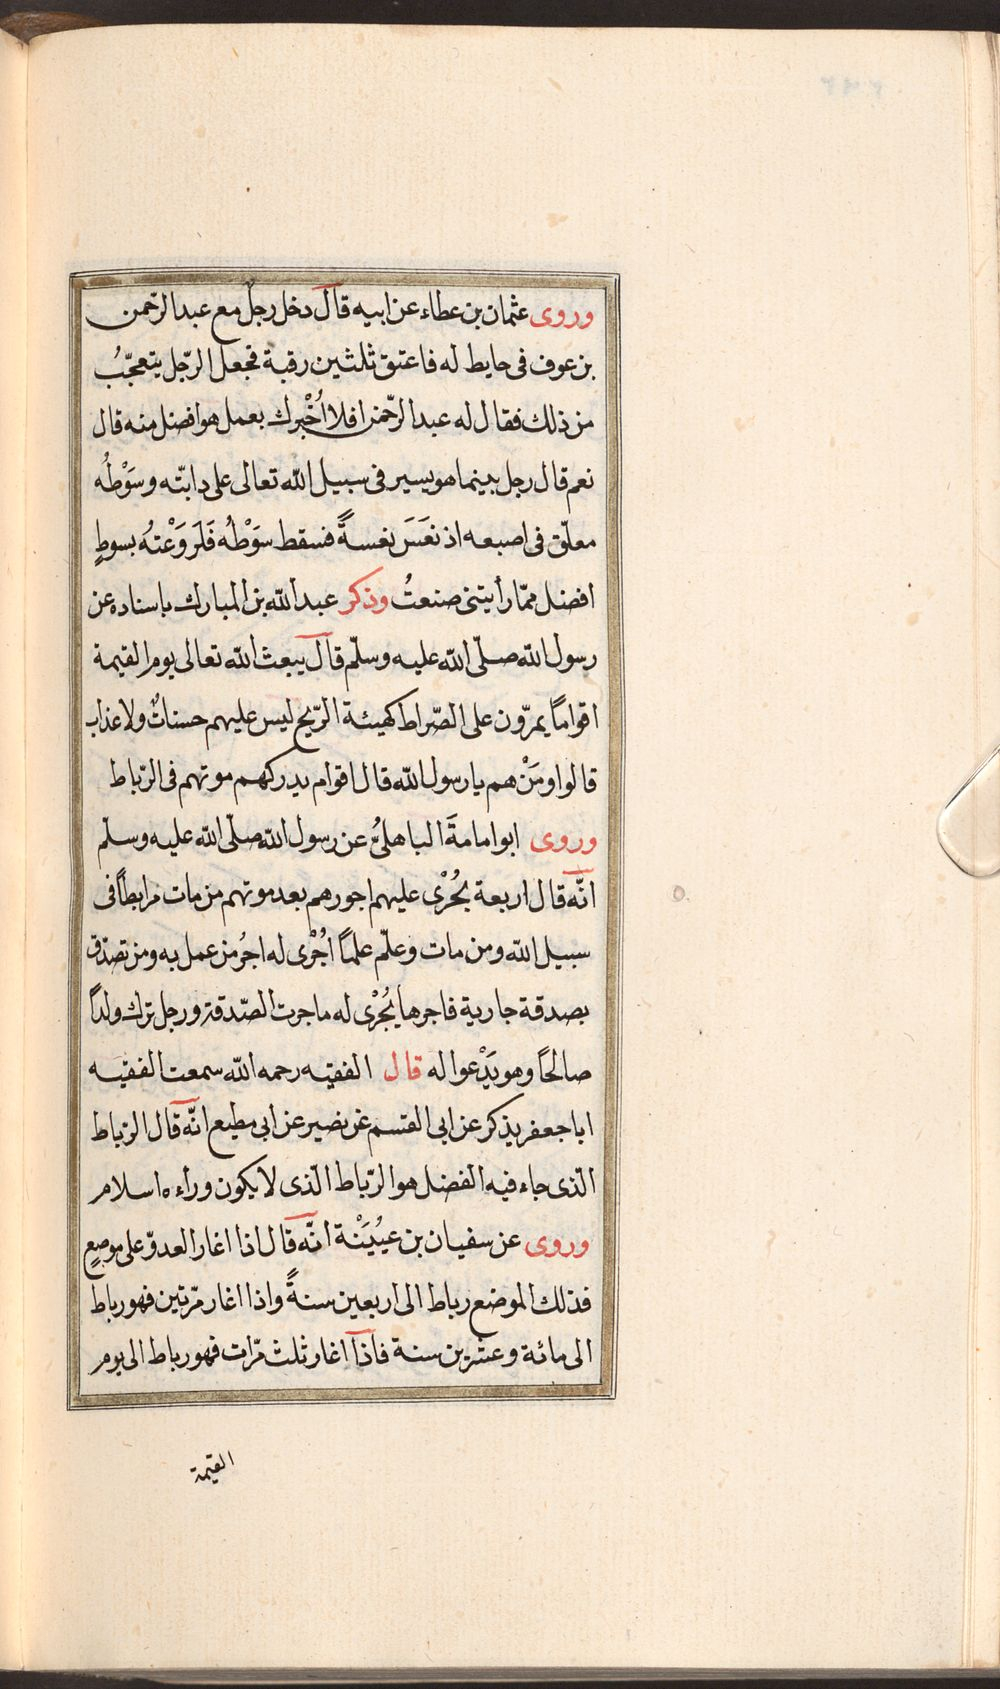 وروى عثمان بن عطاء عن ابيه قال دخل رجل مع عبد الرّحمن
بن عوف فى حايط له فاعتق ثلثين رقبة فجعل الرّجل يتعجّبُ
من ذلك فقال له عبد الرّحمن افلا اُخْبرك بعمل هو افضل منه قال
نعم قال رجل بينما هو يسير فى سبيل الله تعالى على دابّته وسَوْطُه
معلّق فى اصبعه اذ نعَسَ نعْسةً فسقط سَوْطُه فَلَرَوْعتُه بسوطٍ
افضل ممّا رأيتنى صنعتُ وذكر عبد الله بن المبارك باسناده عن
رسول الله صلّى الله عليه وسلّم قال يبعث الله تعالى يوم القيمة
اقواماً يمرّون على الصّراط كهيئة الرّيح ليس عليهم حسناتٌ ولا عذاب
قالوا ومَنْ هم يا رسول الله قال اقوام يدركهم موتهم فى الرّباط
وروى ابو امامةَ الباهلىُّ عن رسول الله صلّى الله عليه وسلّم
انّه قال اربعة يُجْرٰى عليهم اجورهم بعد موتهم من مات مرابطاً فى
سبيل الله ومن مات وعلّم علماً اُجْرى له اجرُ من عمل به ومن تصدّق
بصدقة جارية فاجرها يُجْرٰى له ما جرت الصّدقة ورجل ترك ولداً
صالحًا وهو يَدْعوا له قال الفقيه رحمه الله سمعت الفقيه
ابا جعفر يذكر عن ابى القسم عن نصير عن ابى مطيع انّه قال الرّباط
الّذى جاء فيه الفضل هو الرّباط الّذى لا يكون وراءه اسلام
وروى عن سفيان بن عيُيَنْة انّه قال اذا اغار العدوّ على موضعٍ
فذلك الموضع رباط الى اربعين سنةً واذا اغار مرّتين فهو رباط
الى مائة وعشرين سنة فاذا اغار ثلث مرّات فهو رباط الى يوم
القيمة